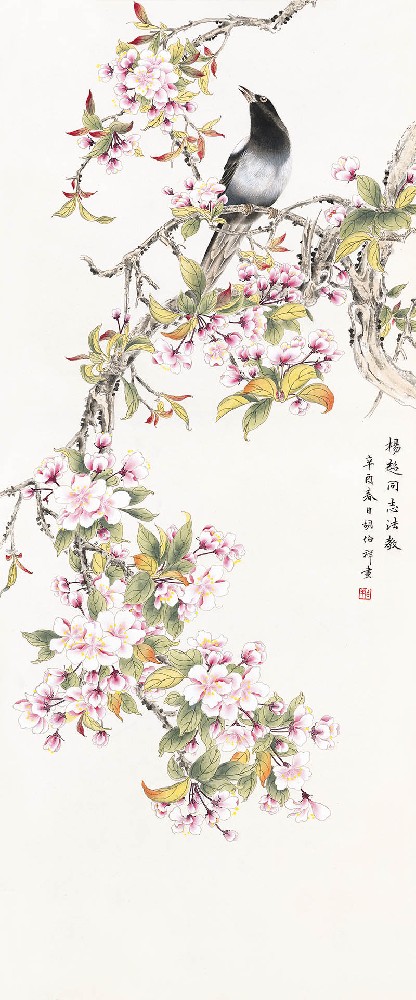 杨超同志法教
辛酉春日胡伯祥画